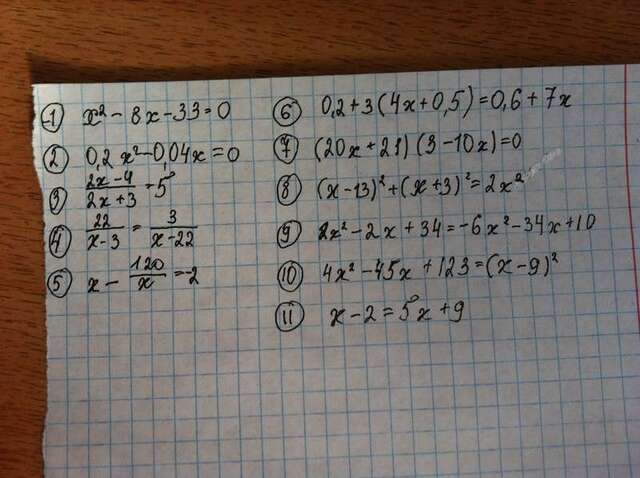 ① x² - 8x - 33 = 0
② 0,2x² - 0,04x = 0
③ (2x-4)/(2x+3) = 5
④ 22/(x-3) = 3/(x-22)
⑤ x - 120/x = -2
⑥ 0,2 + 3(4x + 0,5) = 0,6 + 7x
⑦ (20x + 21)(3 - 10x) = 0
⑧ (x - 13)² + (x + 3)² = 2x²
⑨ 2x² - 2x + 34 = -6x² - 34x + 10
⑩ 4x² - 45x + 123 = (x - 9)²
⑪ x - 2 = 5x + 9